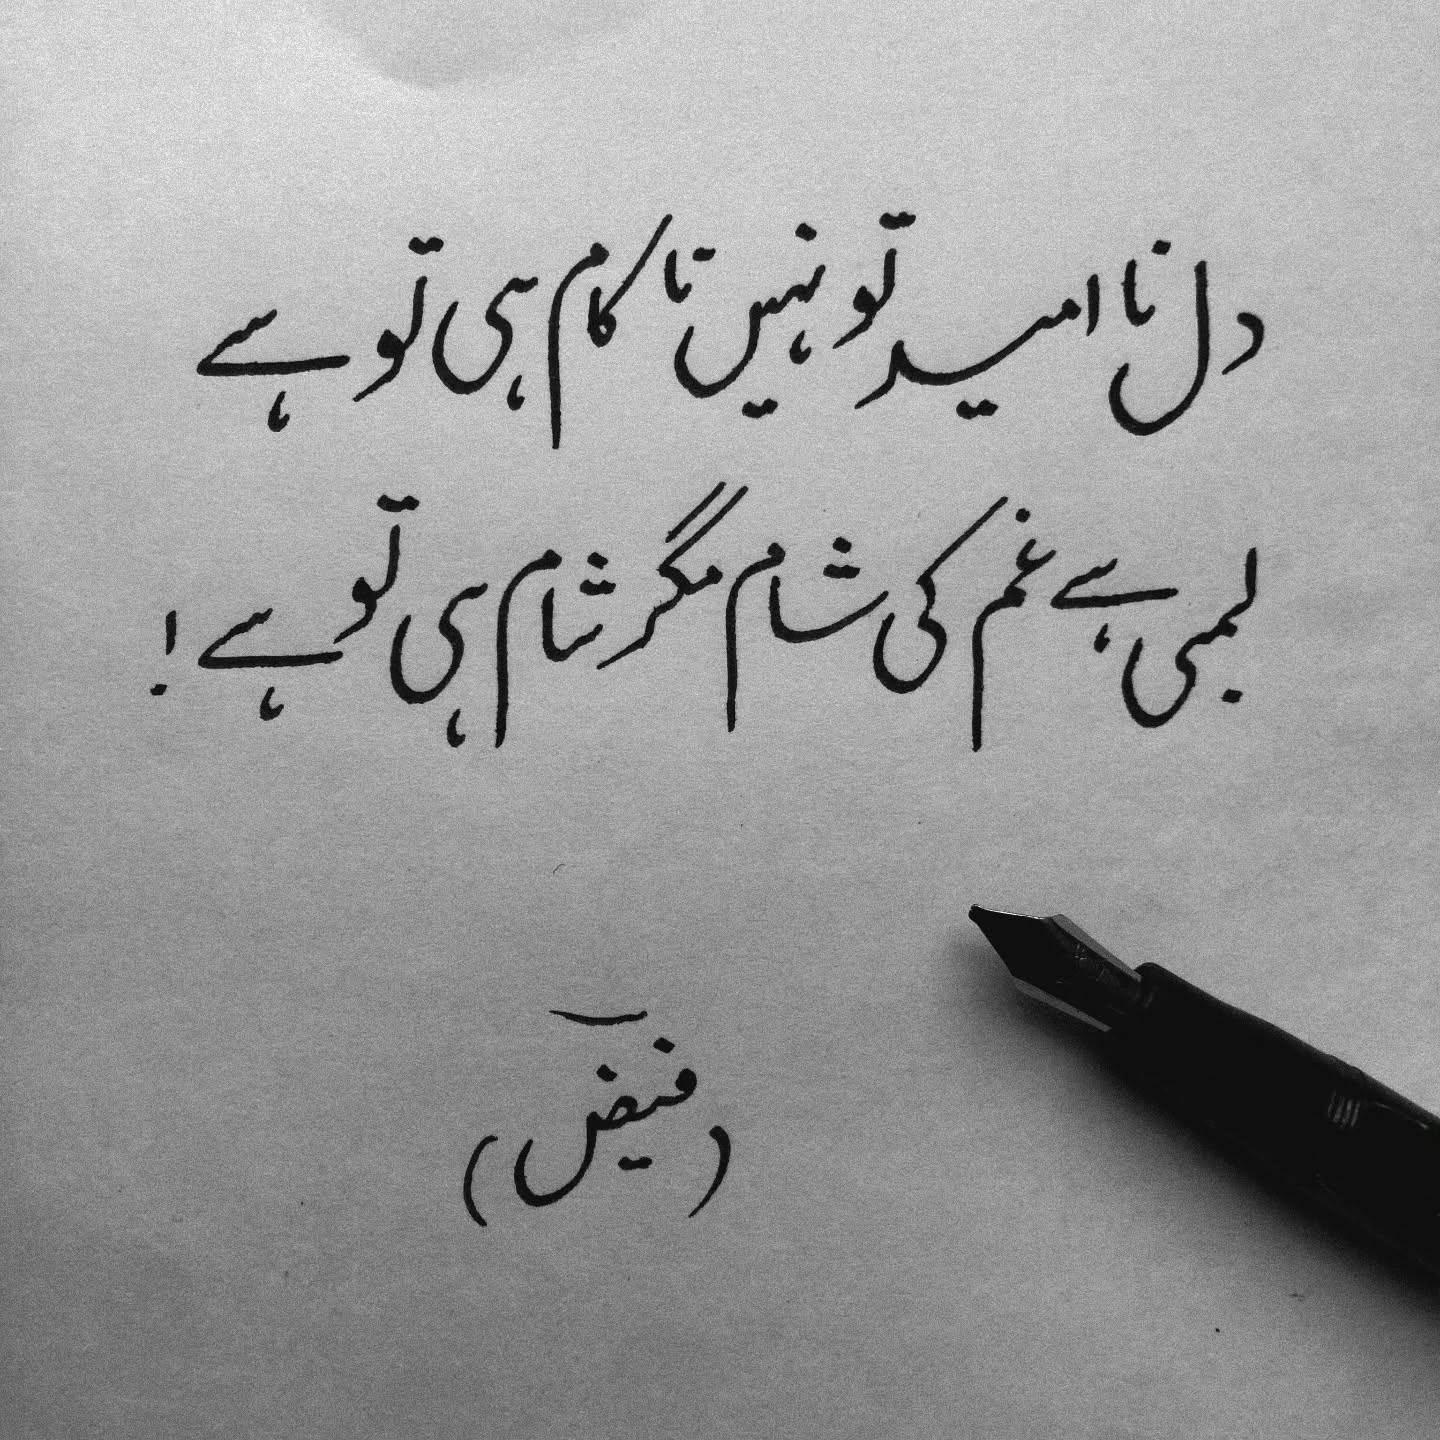 دل نا امید تو نہیں نا کام ہی تو ہے
لمبی ہے غم کی شام مگر شام ہی تو ہے !
(فیض)